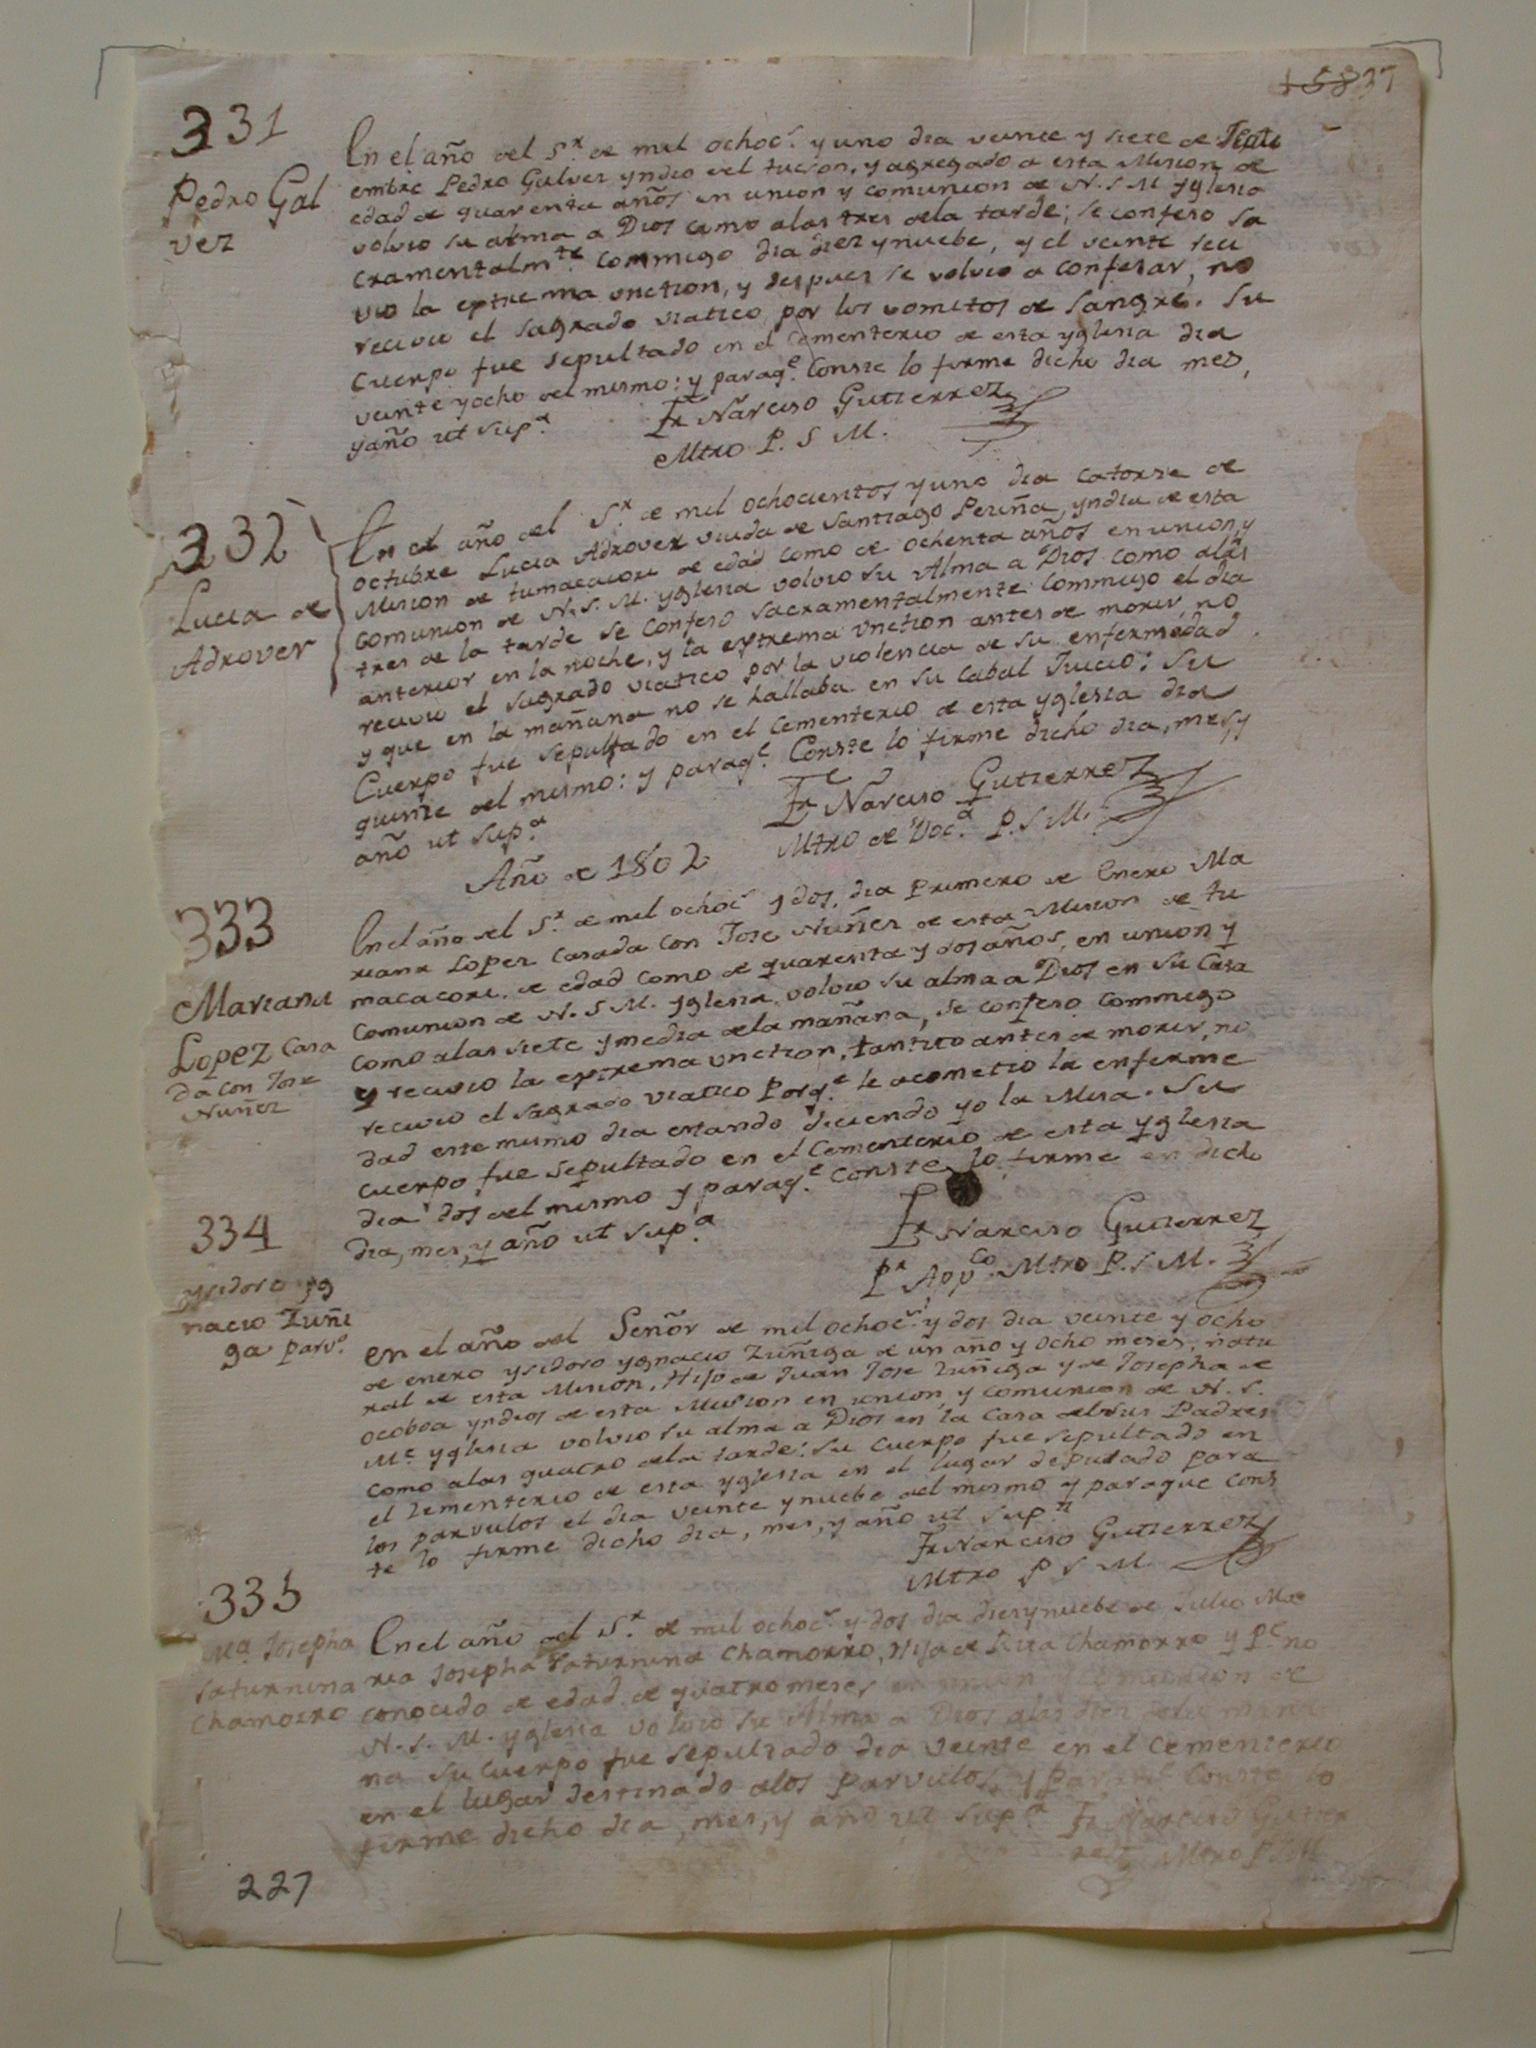 15837
331
Pedro Gal
vez
En el año del Sr. de mil ochocs. y uno dia veinte y siete de Septi
embre Pedro Galvez yndio del tucson, y agregado a esta Mision de
edad de quarenta años en union y comunion de N. S. M. Yglesia
volvio su alma a Dios como alas tres dela tarde; se confeso sa
cramentalmte. commigo dia diez ynuebe, y el veinte reci
vio la extrema vnction, y despues se volvio a confesar, no
recivio el sagrado viatico por los vomitos de sangre. Su
Cuerpo fue sepultado en el Cementerio de esta yglesia dia
veinte yocho del mismo: y paraqe. Conste lo firme dicho dia mes,
yaño ut supa.
Fr. Narciso Gutierrez
Mtro P. S M.
332
Lucia de
Adrover
En el año del Sr. de mil ochocientos y uno dia catorze de
octubre Lucia Adrover viuda de Santiago Periña, yndia de esta
Mision de tumacacori de edad como de ochenta años en union, y
comunion de N. S. M. yglesia volvio su Alma a Dios como alas
tres de la tarde se confeso sacramentalmente commigo el dia
anterior en la noche, y la extrema vnction antes de morir, no
recivio el sagrado viatico por la violencia de su enfermedad
y que en la mañana no se hallaba en su cabal Juicio: Su
Cuerpo fue sepultado en el Cementerio de esta yglesia dia
quinze del mismo: y paraqe. Conste lo firme dicho dia, mes, y
año ut supa.
Fr. Narciso Gutierrez
Mtro de Doca. P. S M.
Año de 1802
333
Mariana
Lopez Casa
da con Jose
Nuñez
En el año del Sr. de mil ochocs y dos, dia Primero de Enero Ma
riana Lopez Casada con Jose Nuñez de esta Mision de tu
macacori. de edad como de quarenta y dos años, en union y
comunion de N. S M. yglesia, volvio su alma a Dios en su Casa
como alas siete y media dela mañana, se confeso commigo
y recivio la extrema vnction, tantito antes de morir, no
recivio el sagrado viatico Porqe. le acometio la enferme
dad este mismo dia estando diciendo yo la Misa. Su
cuerpo fue sepultado en el Cementerio de esta yglesia
dia dos del mismo y paraqe. conste lo firme en dicho
dia, mes, y año ut supa.
Fr Narciso Gutierrez
Pr. Appco. Mtro P. S M.
334
ysidoro yg
nacio Zuñi
ga parvo.
en el año del Señor de mil ochocs. y dos dia veinte y ocho
de enero ysidoro ygnacio Zuñiga de un año y ocho meses, natu
ral de esta Mision, Hijo de Juan Jose Zuñiga y de Josepha de
ocoboa yndios de esta Mision en union, y comunion de N. S.
Me. yglesia volvio su alma a Dios en la Casa de sus Padres
como alas quatro dela tarde: su cuerpo fue sepultado en
el Zementerio de esta yglesia en el lugar deputado para
los parvulos el dia veinte ynuebe del mismo y paraque cons
te lo firme dicho dia, mes, y año ut supa.
Fr Narciso Gutierrez
Mtro P S M.
335
Ma. Josepha
Saturnina
Chamorro
En el año del Sr. de mil ochocs. y dos dia diesynuebe de Julio Ma
ria Josepha Saturnina Chamorro, Hija de Rita Chamorro y Pe. no
conocido de edad de quatro meses en union y comunion de
N. S. M. yglesia volvio su Alma a Dios alas diez dela maña
na su cuerpo fue sepultado dia veinte en el cementerio
en el lugar destinado alos Parvulos, y Paraqe. Conste lo
firme dicho dia, mes, y año ut supa. Fr Narciso Gutier
rez Mtro P S M
227